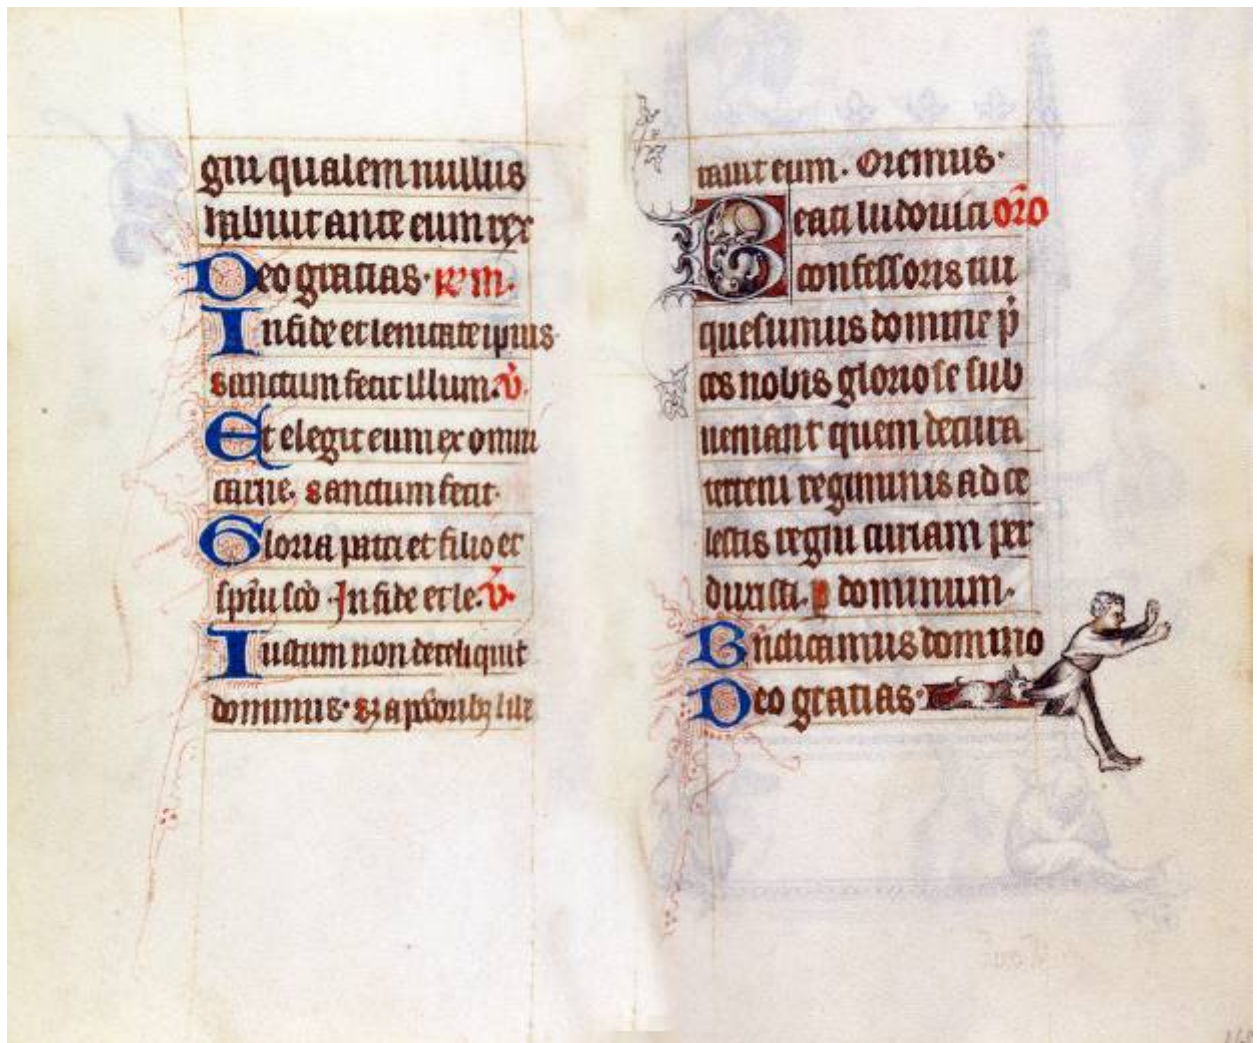 gni qualem nullus
habuit ante eum rex
Deo gratias. R' m.
In fide et lenitate ipius
sanctum fecit illum. V
Et elegit eum ex omni
carne. sanctum fecit.
Gloria patri et filio et
spiu sco. In fide et le. V
Iustum non dereliquit
dominus. Sz a
tauit eum. Oremus.
Beati ludouici oro
confessoris tui
quesumus domine p
ces nobis gloriose sub
ueniant quem de cura
terreni regiminis ad ce
lestis regni curiam per
duxisti. P dominum.
Bndicamus domino
Deo gratias.